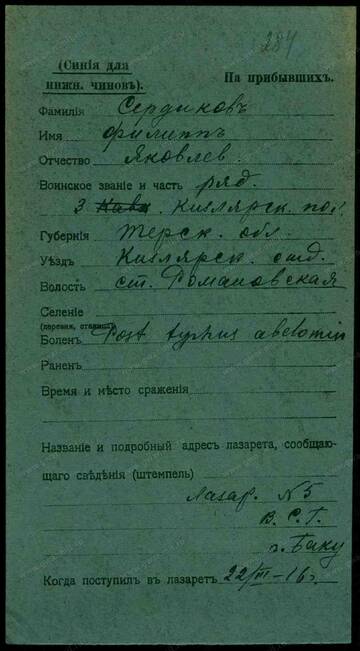 284
(Синія для
нижн. чиновъ).
На прибывшихъ.
Фамилія Сердюковъ
Имя Филиппъ
Отчество Яковлев.
Воинское званіе и часть ряд.
3 Кизлярск. пол.
Губернія Терск. обл.
Уѣздъ Кизлярск. отд.
Волость ст. Романовская
Селеніе
(деревня, станица)
Боленъ Post typhus abdomin
Раненъ
Время и мѣсто сраженія
Названіе и подробный адресъ лазарета, сообщаю-
щаго свѣдѣнія (штемпель)
Лазар. N 5
В. С. Г.
г. Баку
Когда поступилъ въ лазаретъ 22/III-16 г.